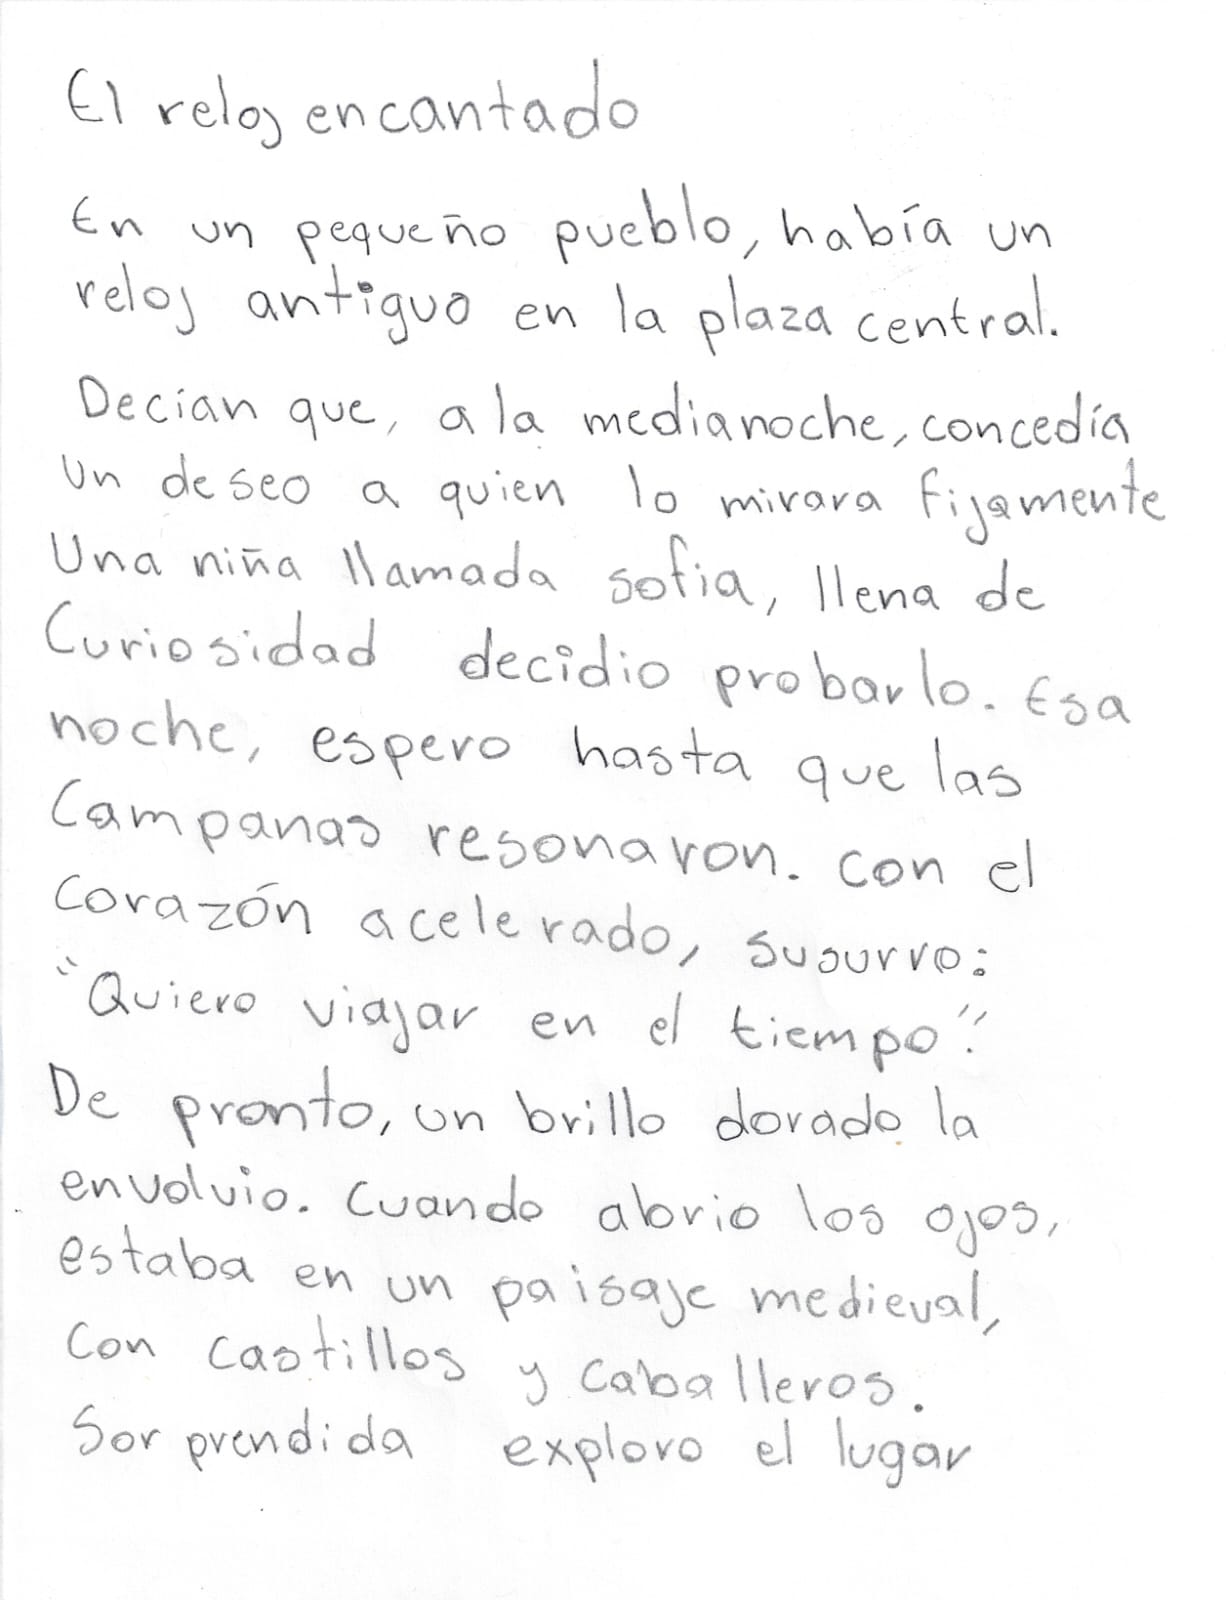 El reloj encantado
En un pequeño pueblo, había un
reloj antiguo en la plaza central.
Decían que, a la medianoche, concedía
un deseo a quien lo mirara fijamente
Una niña llamada sofia, llena de
Curiosidad decidio probarlo. Esa
noche, espero hasta que las
Campanas resonaron. con el
corazón acelerado, susurro:
"Quiero viajar en el tiempo".
De pronto, un brillo dorado la
envolvio. Cuando abrio los ojos,
estaba en un paisaje medieval,
Con castillos y caballeros.
Sorprendida exploro el lugar